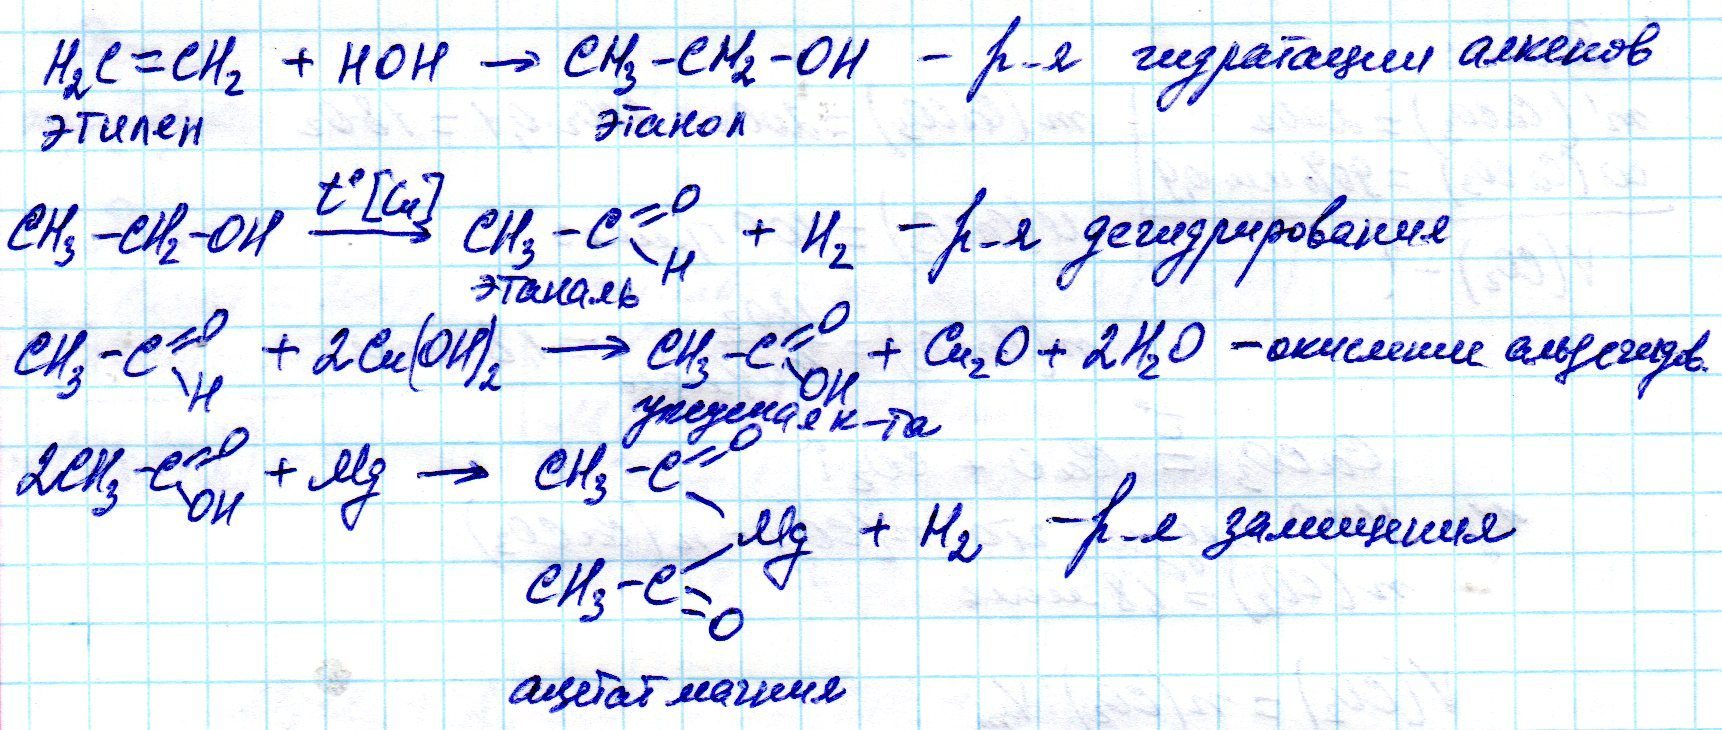 H₂C=CH₂ + HOH → CH₃-CH₂-OH - р-я гидратации алкенов
этилен этанол
t° [Cu]
CH₃-CH₂-OH → CH₃-C=O H + H₂ - р-я дегидрирования
этаналь
CH₃-C=O H + 2Cu(OH)₂ → CH₃-C=O OH + Cu₂O + 2H₂O - окисление альдегидов.
уксусная к-та
2CH₃-C=O OH + Mg → CH₃-C=O
Mg + H₂ - р-я замещения
CH₃-C=O
ацетат магния